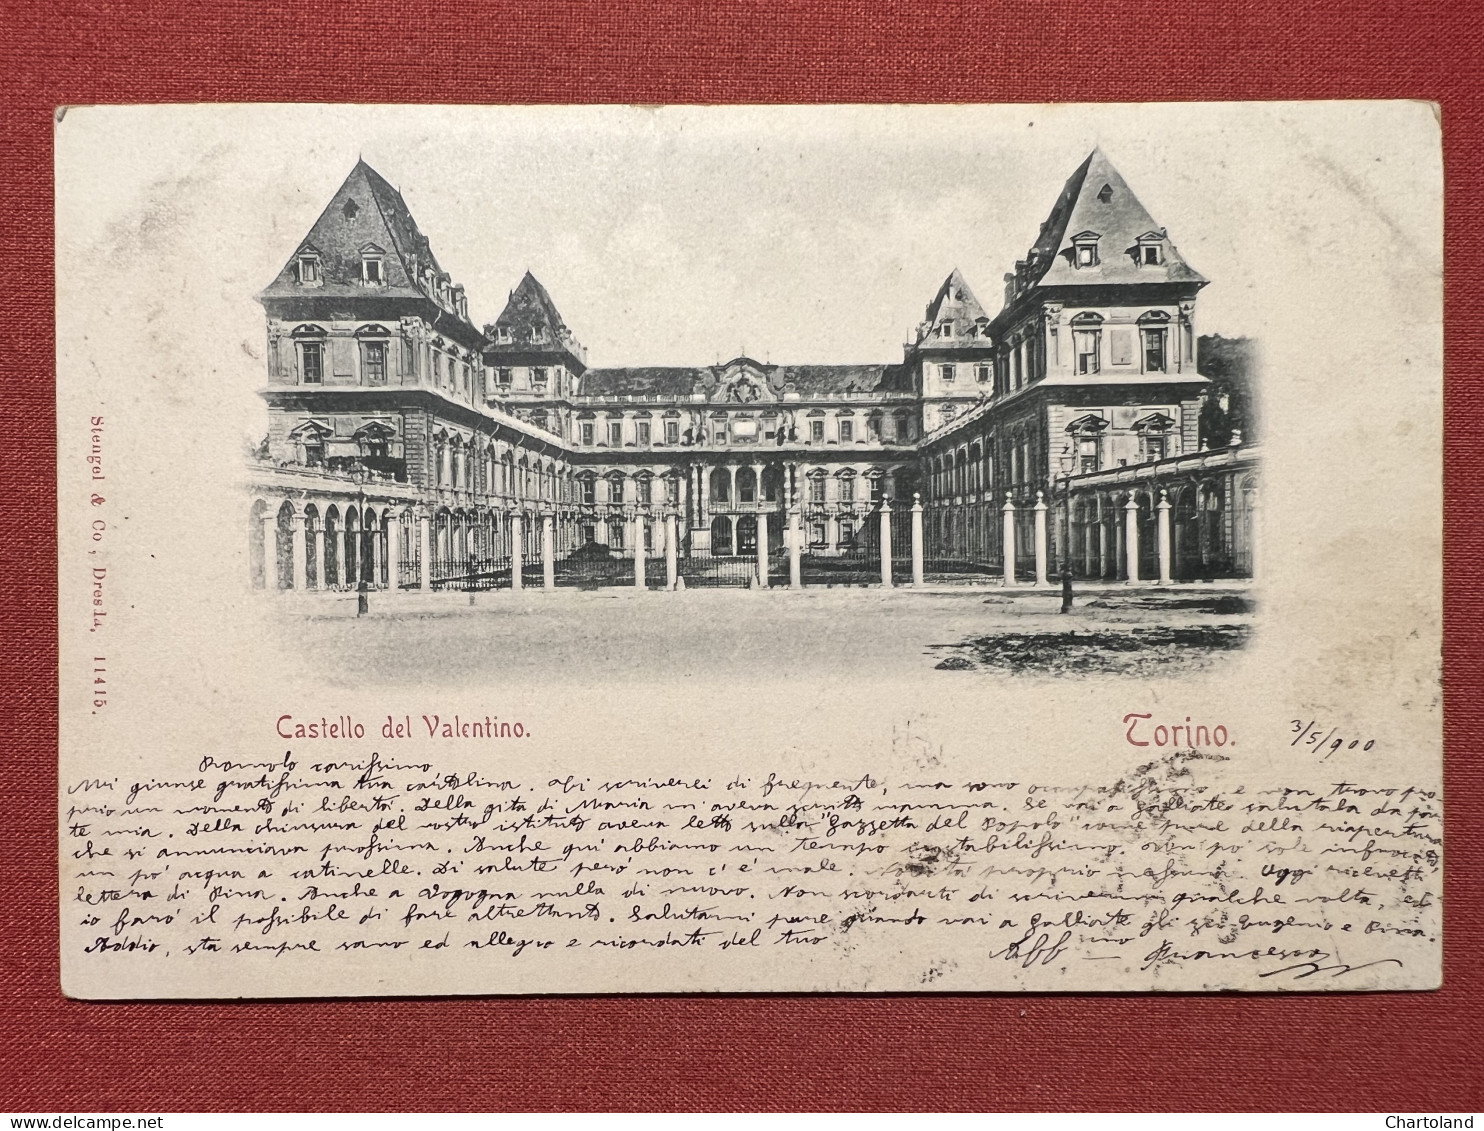 Stengel & Co., Dresda, 11415.
Castello del Valentino.
Torino.
3/5/900
Romolo carissimo
Mi giunse gratissima tua cartolina. Ti scriverei di frequente, ma sono occupatissimo, e non trovo pro
prio un momento di libertà. Della gita di Maria m'aveva scritto mamma. Se vai a Galliate salutala da par
te mia. Della chiusura del vostro istituto aveva letto sulla "Gazzetta del Popolo" come pure della riapertura
che si annunciava prossima. Anche qui abbiamo un tempo instabilissimo. Un po' sole infuocato,
un po' acqua a catinelle. Di salute però non c'è male. Novità proprio nessuna. Oggi ricevetti
lettera di Pina. Anche a Vogogna nulla di nuovo. Non scordarti di scrivermi qualche volta, ed
io farò il possibile di fare altrettanto. Salutami pure quando vai a Galliate gli zii Eugenio e Pina.
Addio, sta sempre sano ed allegro e ricordati del tuo
Aff mo Francesco
Chartoland